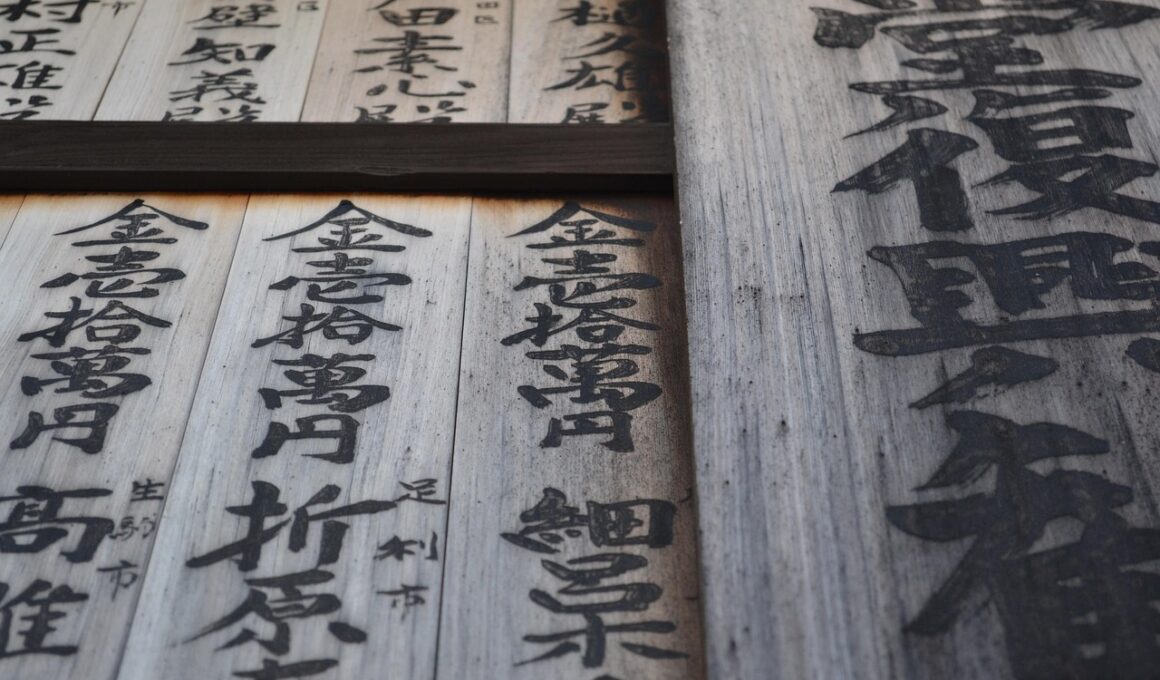 堂復興
雄殿
田素心殿
区
壁知義殿
区
村正雄
市
金壱拾萬円
細呂
金壱拾萬円
足利市
折原
金壱拾萬円
生駒市
高